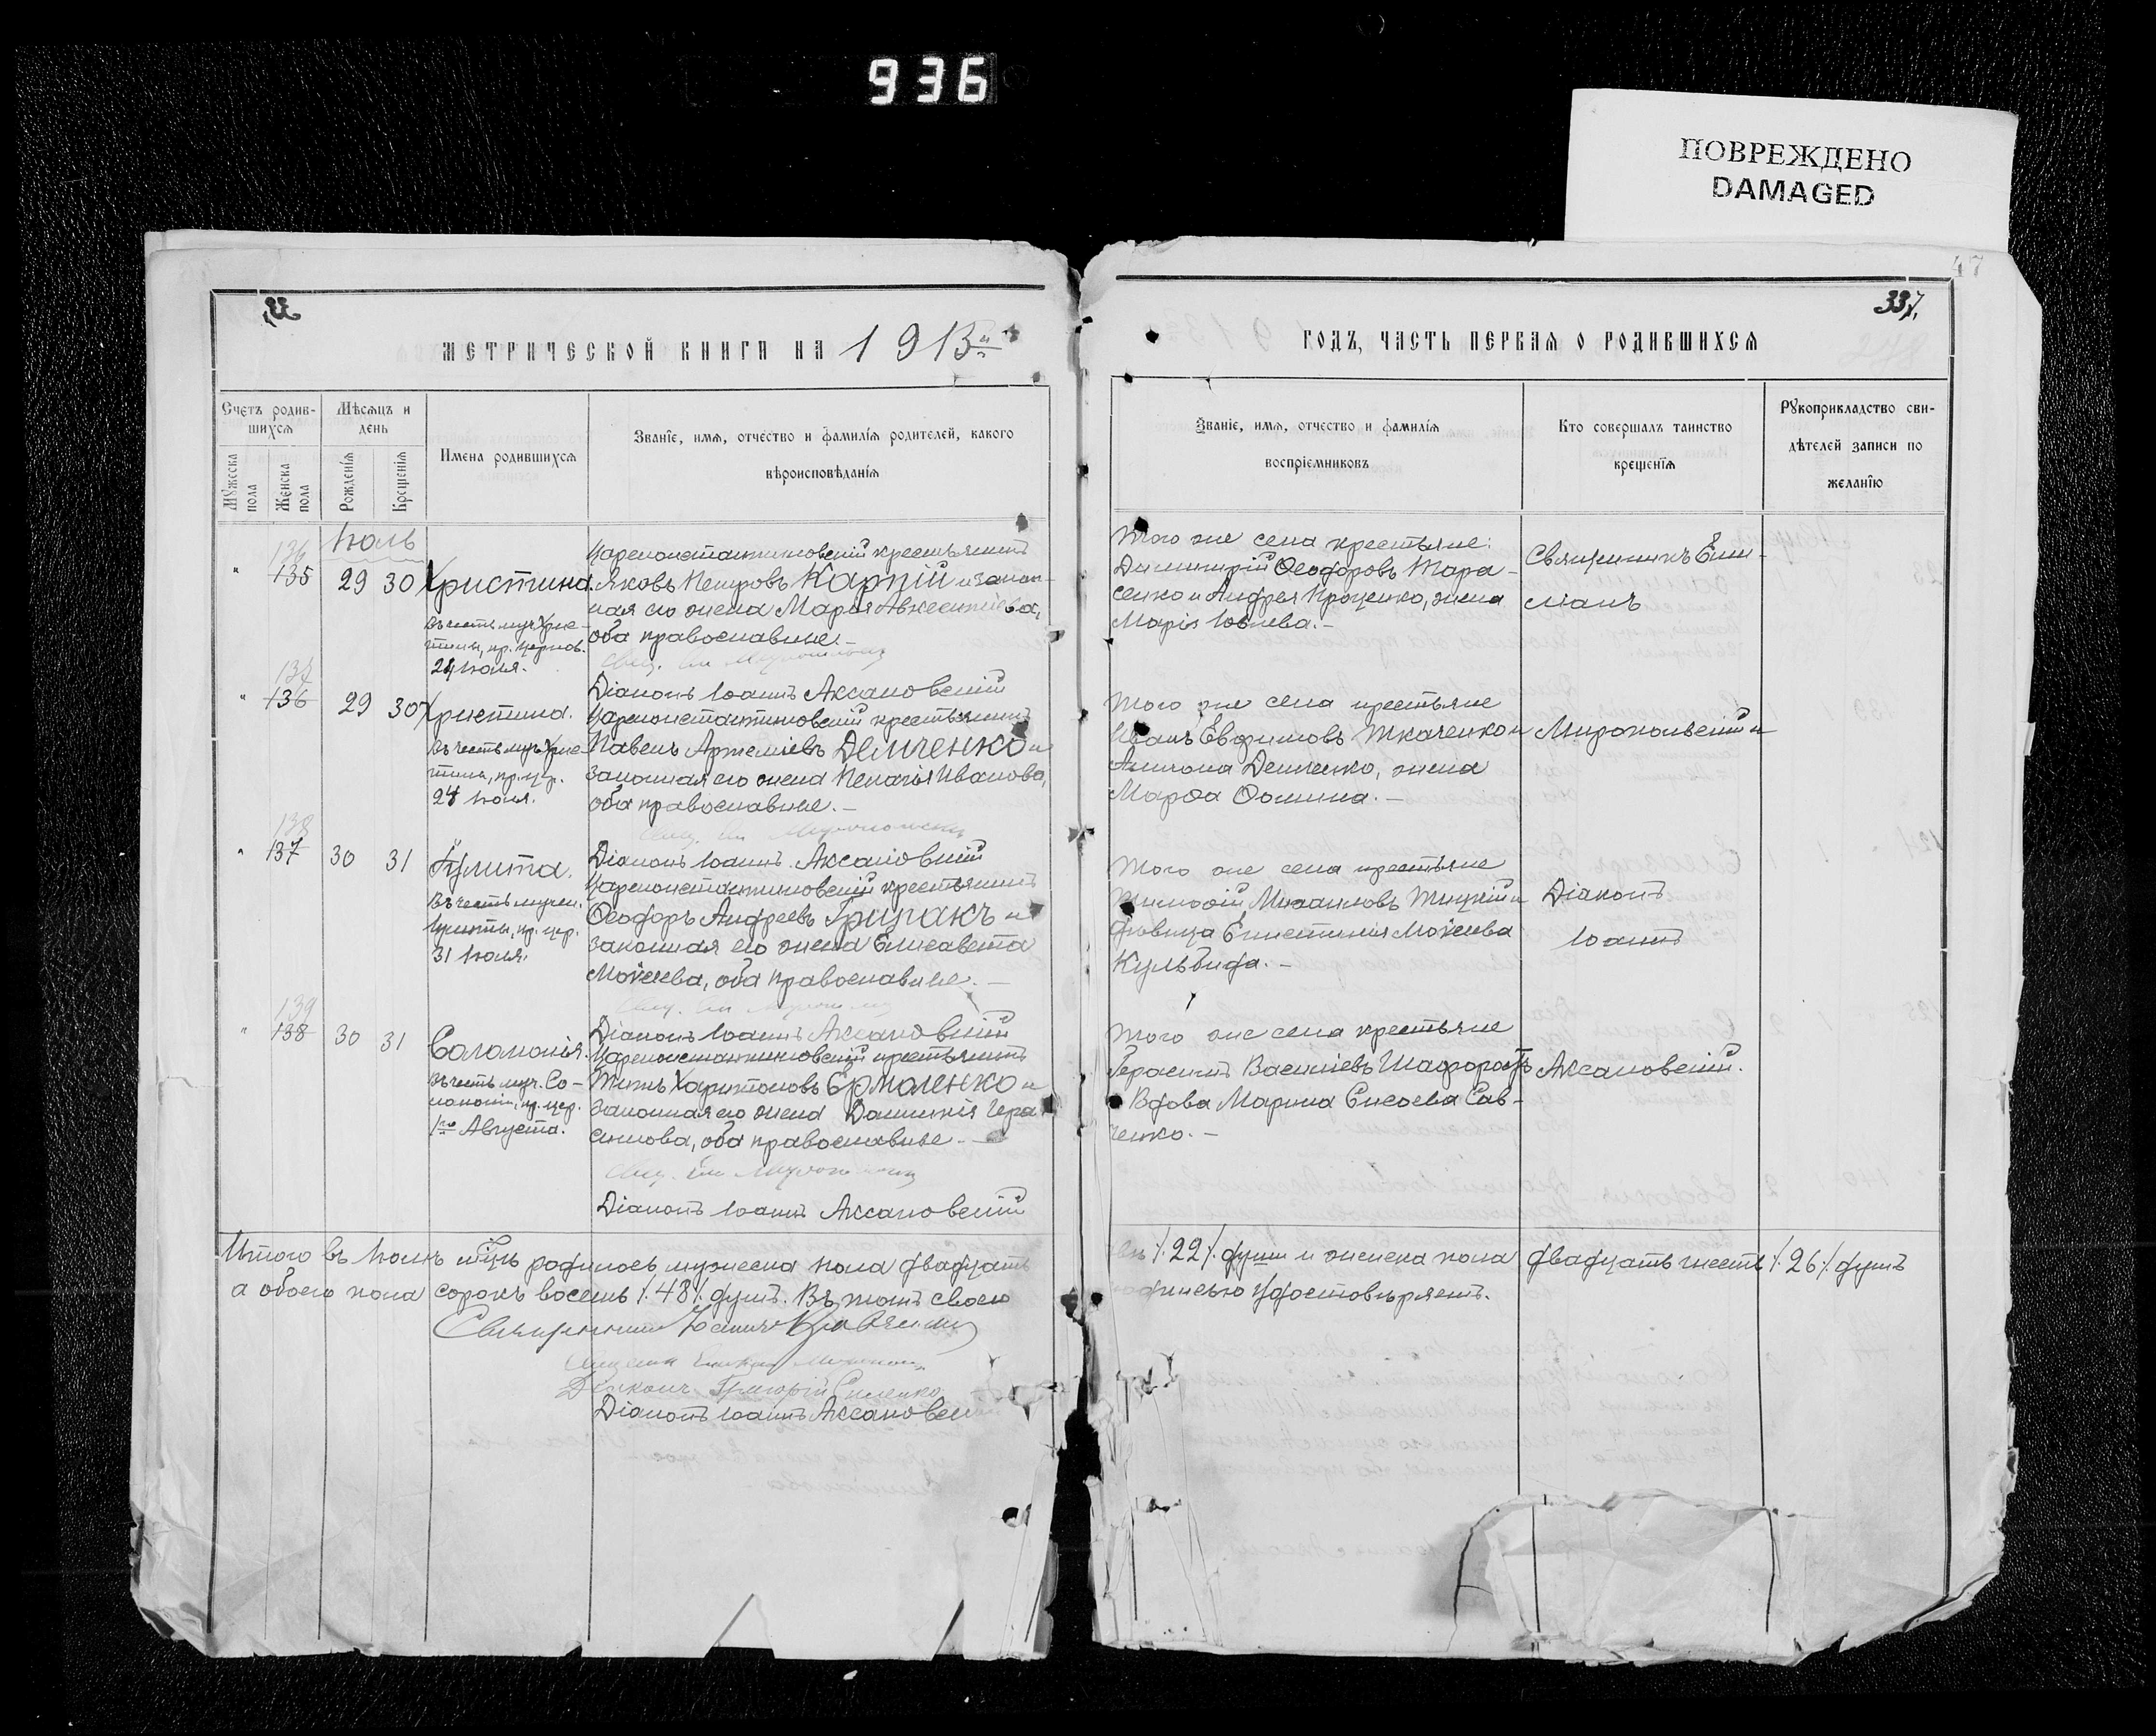 936
ПОВРЕЖДЕНО
DAMAGED
47
337,
МЕТРИЧЕСКОЙ КНИГИ НА 1913й
ГОДЪ, ЧАСТЬ ПЕРВАЯ О РОДИВШИХСЯ
Счетъ родив-
шихся
Мѣсяцъ и
день
Мужеска
пола
Женска
пола
Рожденія
Крещенія
Имена родившихся
Званіе, имя, отчество и фамилія родителей, какого
вѣроисповѣданія
Званіе, имя, отчество и фамилія
воспріемниковъ
Кто совершалъ таинство
крещенія
Рукоприкладство сви-
дѣтелей записи по
желанію
Іюль
136
" 135 29 30 Христина.
Въ честь муч. Хрис-
тины, пр. церков.
24 Іюля.
Цареконстантиновскій крестьянинъ
Яковъ Петровъ Карпій и закон-
ная его жена Марѳа Авксентіева,
оба православные.-
Діаконъ Іоаннъ Аксановскій
Того же села крестьяне:
Димитрій Ѳеодоровъ Тара-
сенко и Андрея Проценко, жена
Марія Іовлева.-
Священникъ Еми-
ліанъ
137
" 136 29 30 Христина.
Въ честь муч. Хрис-
тины, пр. цер.
24 Іюля.
Цареконстантиновскій крестьянинъ
Павелъ Артеміевъ Демченко и
законная его жена Пелагія Иванова,
оба православные.-
Діаконъ Іоаннъ Аксановскій
Того же села крестьяне
Иванъ Евфимовъ Ткаченко и
Антона Демченко, жена
Марѳа Ѳомина.-
Миропольскій и
138
" 137 30 31 Іулита.
Въ честь мучен.
Іулиты, пр. цер.
31 Іюля.
Цареконстантиновскій крестьянинъ
Ѳеодоръ Андреевъ Грицакъ и
законная его жена Елисавета
Моѵсеева, оба православные.-
Діаконъ Іоаннъ Аксановскій
Того же села крестьяне
Тимоѳій Михаиловъ Тицкій и
дѣвица Епистимія Моѵсеева
Кульбида.-
Діаконъ
Іоаннъ
139
" 138 30 31 Соломонія.
Въ честь муч. Со-
ломоніи, пр. цер.
1го Августа.
Цареконстантиновскій крестьянинъ
Титъ Харитоновъ Ермоленко и
законная его жена Домникія Гера-
симова, оба православные.-
Діаконъ Іоаннъ Аксановскій
Того же села крестьяне
Герасимъ Василіевъ Шафоростъ
Вдова Марина Сисоева Сав-
ченко.-
Аксановскій.
Итого въ Іюлѣ м-цѣ родилось мужеска пола двадцать
двѣ /.22/. души и женска пола двадцать шесть /.26/. душъ
а обоего пола сорокъ восемь /.48/. душъ. Въ томъ своею
подписью удостовѣряетъ.
Священникъ
Діаконъ Григорій
Діаконъ Іоаннъ Аксановскій